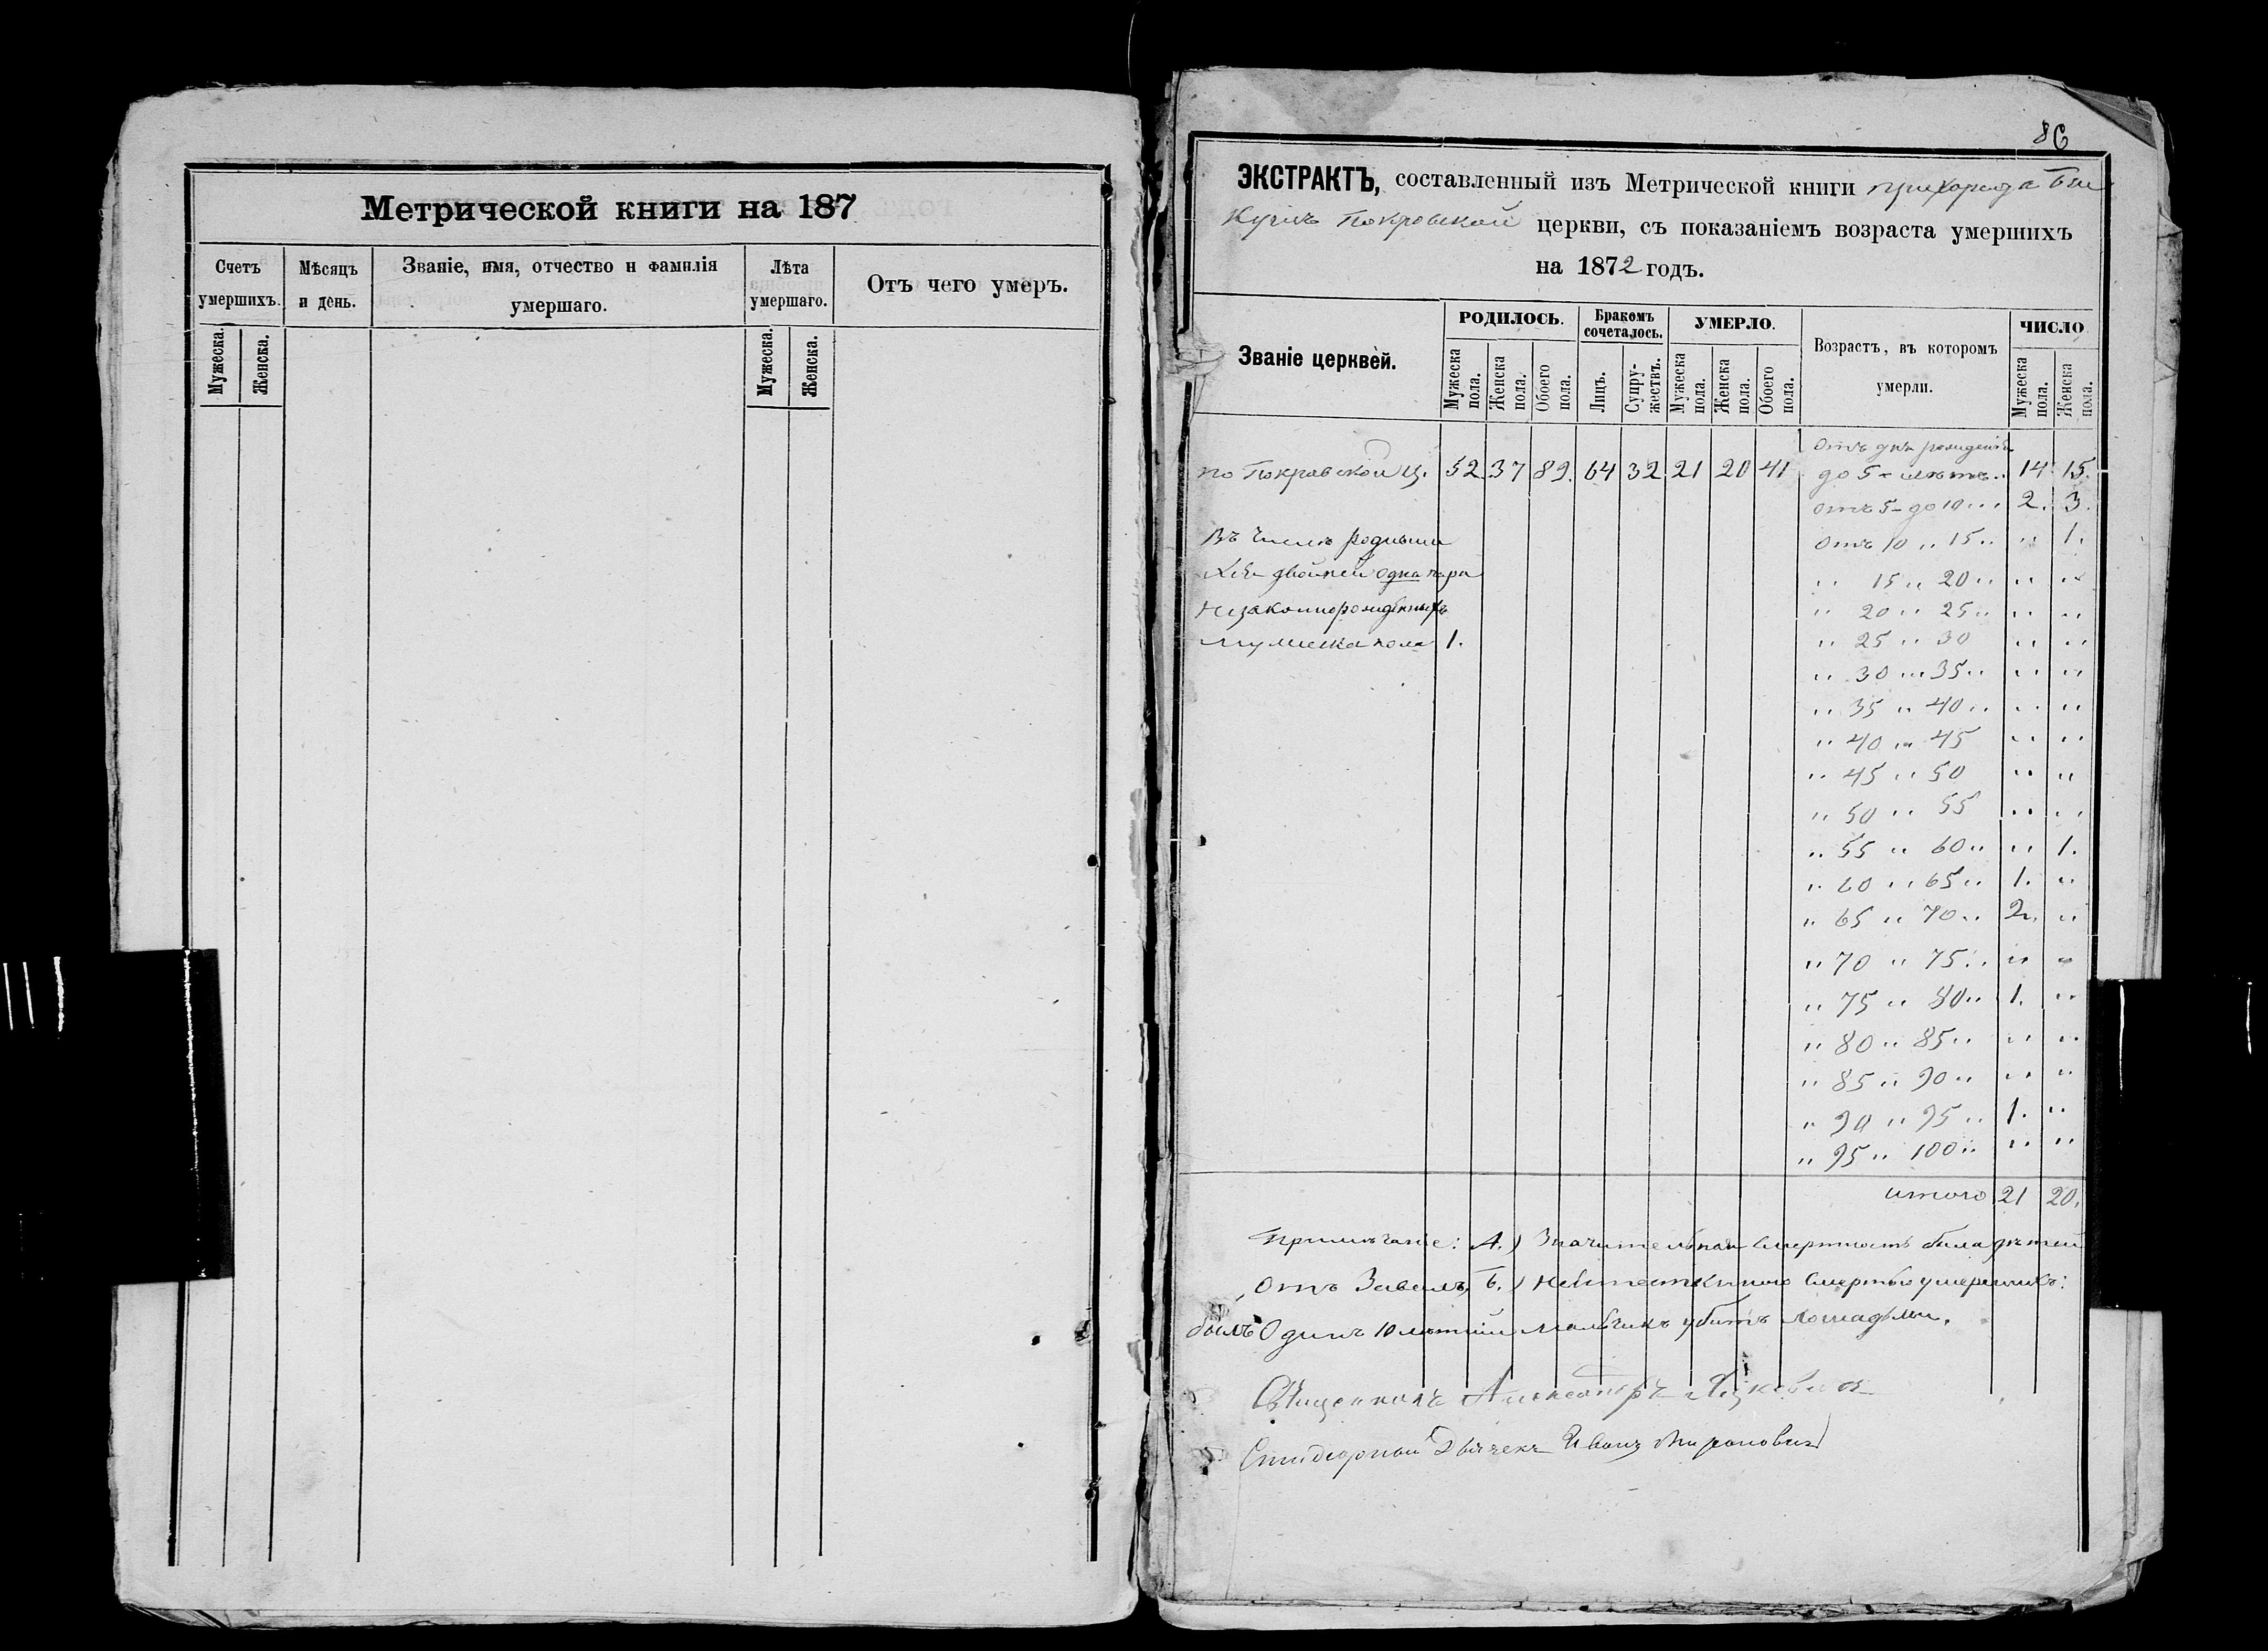 Метрической книги на 187
Счетъ умершихъ.
Мѣсяцъ и день.
Званіе, имя, отчество и фамилія умершаго.
Лѣта умершаго.
Отъ чего умеръ.
Мужеска. Женска. Мужеска. Женска.
86
ЭКСТРАКТЪ, составленный изъ Метрической книги прихода
Покровской церкви, съ показаніемъ возраста умершихъ
на 1872 годъ.
Званіе церквей.
РОДИЛОСЬ. Бракомъ сочеталось. УМЕРЛО.
Возрастъ, въ которомъ умерли.
ЧИСЛО
Мужеска пола. Женска пола. Обоего пола. Лицъ. Супружествъ. Мужеска пола. Женска пола. Обоего пола. Мужеска пола. Женска пола.
Отъ дня рожденія
по Покровской ц. 52. 37 89. 64 32 21 20 41 до 5-лѣтъ.. 14 15.
отъ 5-до 10... 2. 3.
Въ числѣ родивши отъ 10 „ 15 „ „ 1.
хся двойней одна пара „ 15 „ 20 „ „ „
Незаконнорожденныхъ „ 20 „ 25 „ „ „
мужеска пола 1. „ 25 „ 30 „ „
„ 30 „ 35 „ „ „
„ 35 „ 40 „ „ „
„ 40 „ 45 „ „
„ 45 „ 50 „ „
„ 50 „ 55 „ „
„ 55 „ 60 „ „ 1.
„ 60 „ 65 „ 1. „
„ 65 „ 70 „ 2. „
„ 70 „ 75 „ „ „
„ 75 „ 80 „ 1. „
„ 80 „ 85 „ „ „
„ 85 „ 90 „ „ „
„ 90 „ 95 „ 1. „
„ 95 „ 100 „ „ „
итого 21 20.
Примѣчаніе: А.) Значительная смертность была дѣтей
отъ Б.) смертью умершихъ:
былъ Одинъ 10 лѣтній мальчикъ убитъ лошадьми.
Священникъ Александръ
Дьячекъ Иванъ Мироновичъ